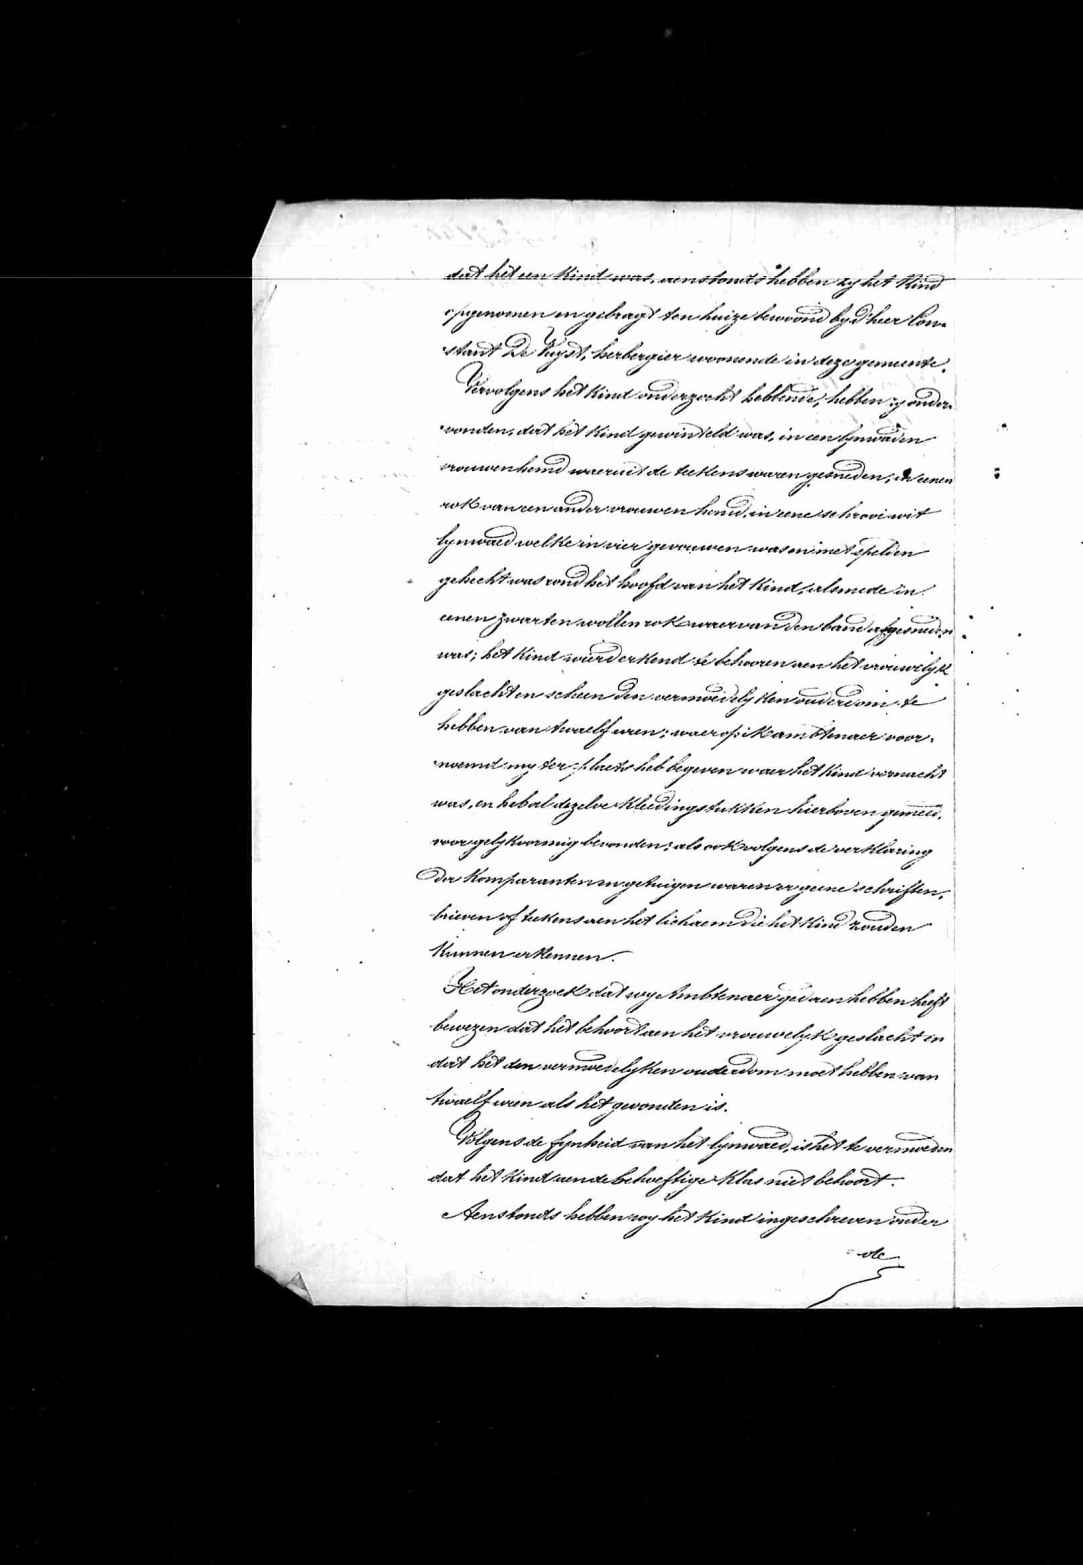 dat het een kind was, aenstonds hebben zy het kind
opgenomen en gebragt ten huize bewoond by d'heer Con-
stant De Vuyst, herbergier woonende in deze gemeente.
Vervolgens het kind onderzocht hebbende, hebben zy onder-
vonden, dat het kind gewinteld was, in een lynwaden
vrouwenhemd waeruit de teekens waren gesneden, in eenen
rok van een ander vrouwen hemd, in eene schrooi wit
lynwaed welke in vier gevouwen was en met spellen
gehecht was rond het hoofd van het kind, alsmede in
eenen zwarten wollen rok waervan den band afgesneden
was; het kind wierd erkend te behooren aen het vrouwelyk
geslacht en scheen den vermoedelyken ouderdom te
hebben van twaelf uren; waerop ik ambtenaer voor-
noemd my ter plaets heb begeven waer het kind vernacht
was, en heb al dezelve kleedingstukken hierboven gemeld,
voor gelykvormig bevonden; als ook volgens de verklaring
der komparanten en getuigen waren er geene schriften,
brieven of teekens aen het lichaem die het kind zouden
kunnen erkennen.
Het onderzoek dat wy Ambtenaer gedaen hebben heeft
bewezen dat het behoort aen het vrouwelyk geslacht en
dat het den vermoedelyken ouderdom moet hebben van
twaelf uren als het gevonden is.
Volgens de fynheid van het lynwaed, is het te vermoeden
dat het kind aen de behoeftige klas niet behoort.
Aenstonds hebben wy het kind ingeschreven onder
de